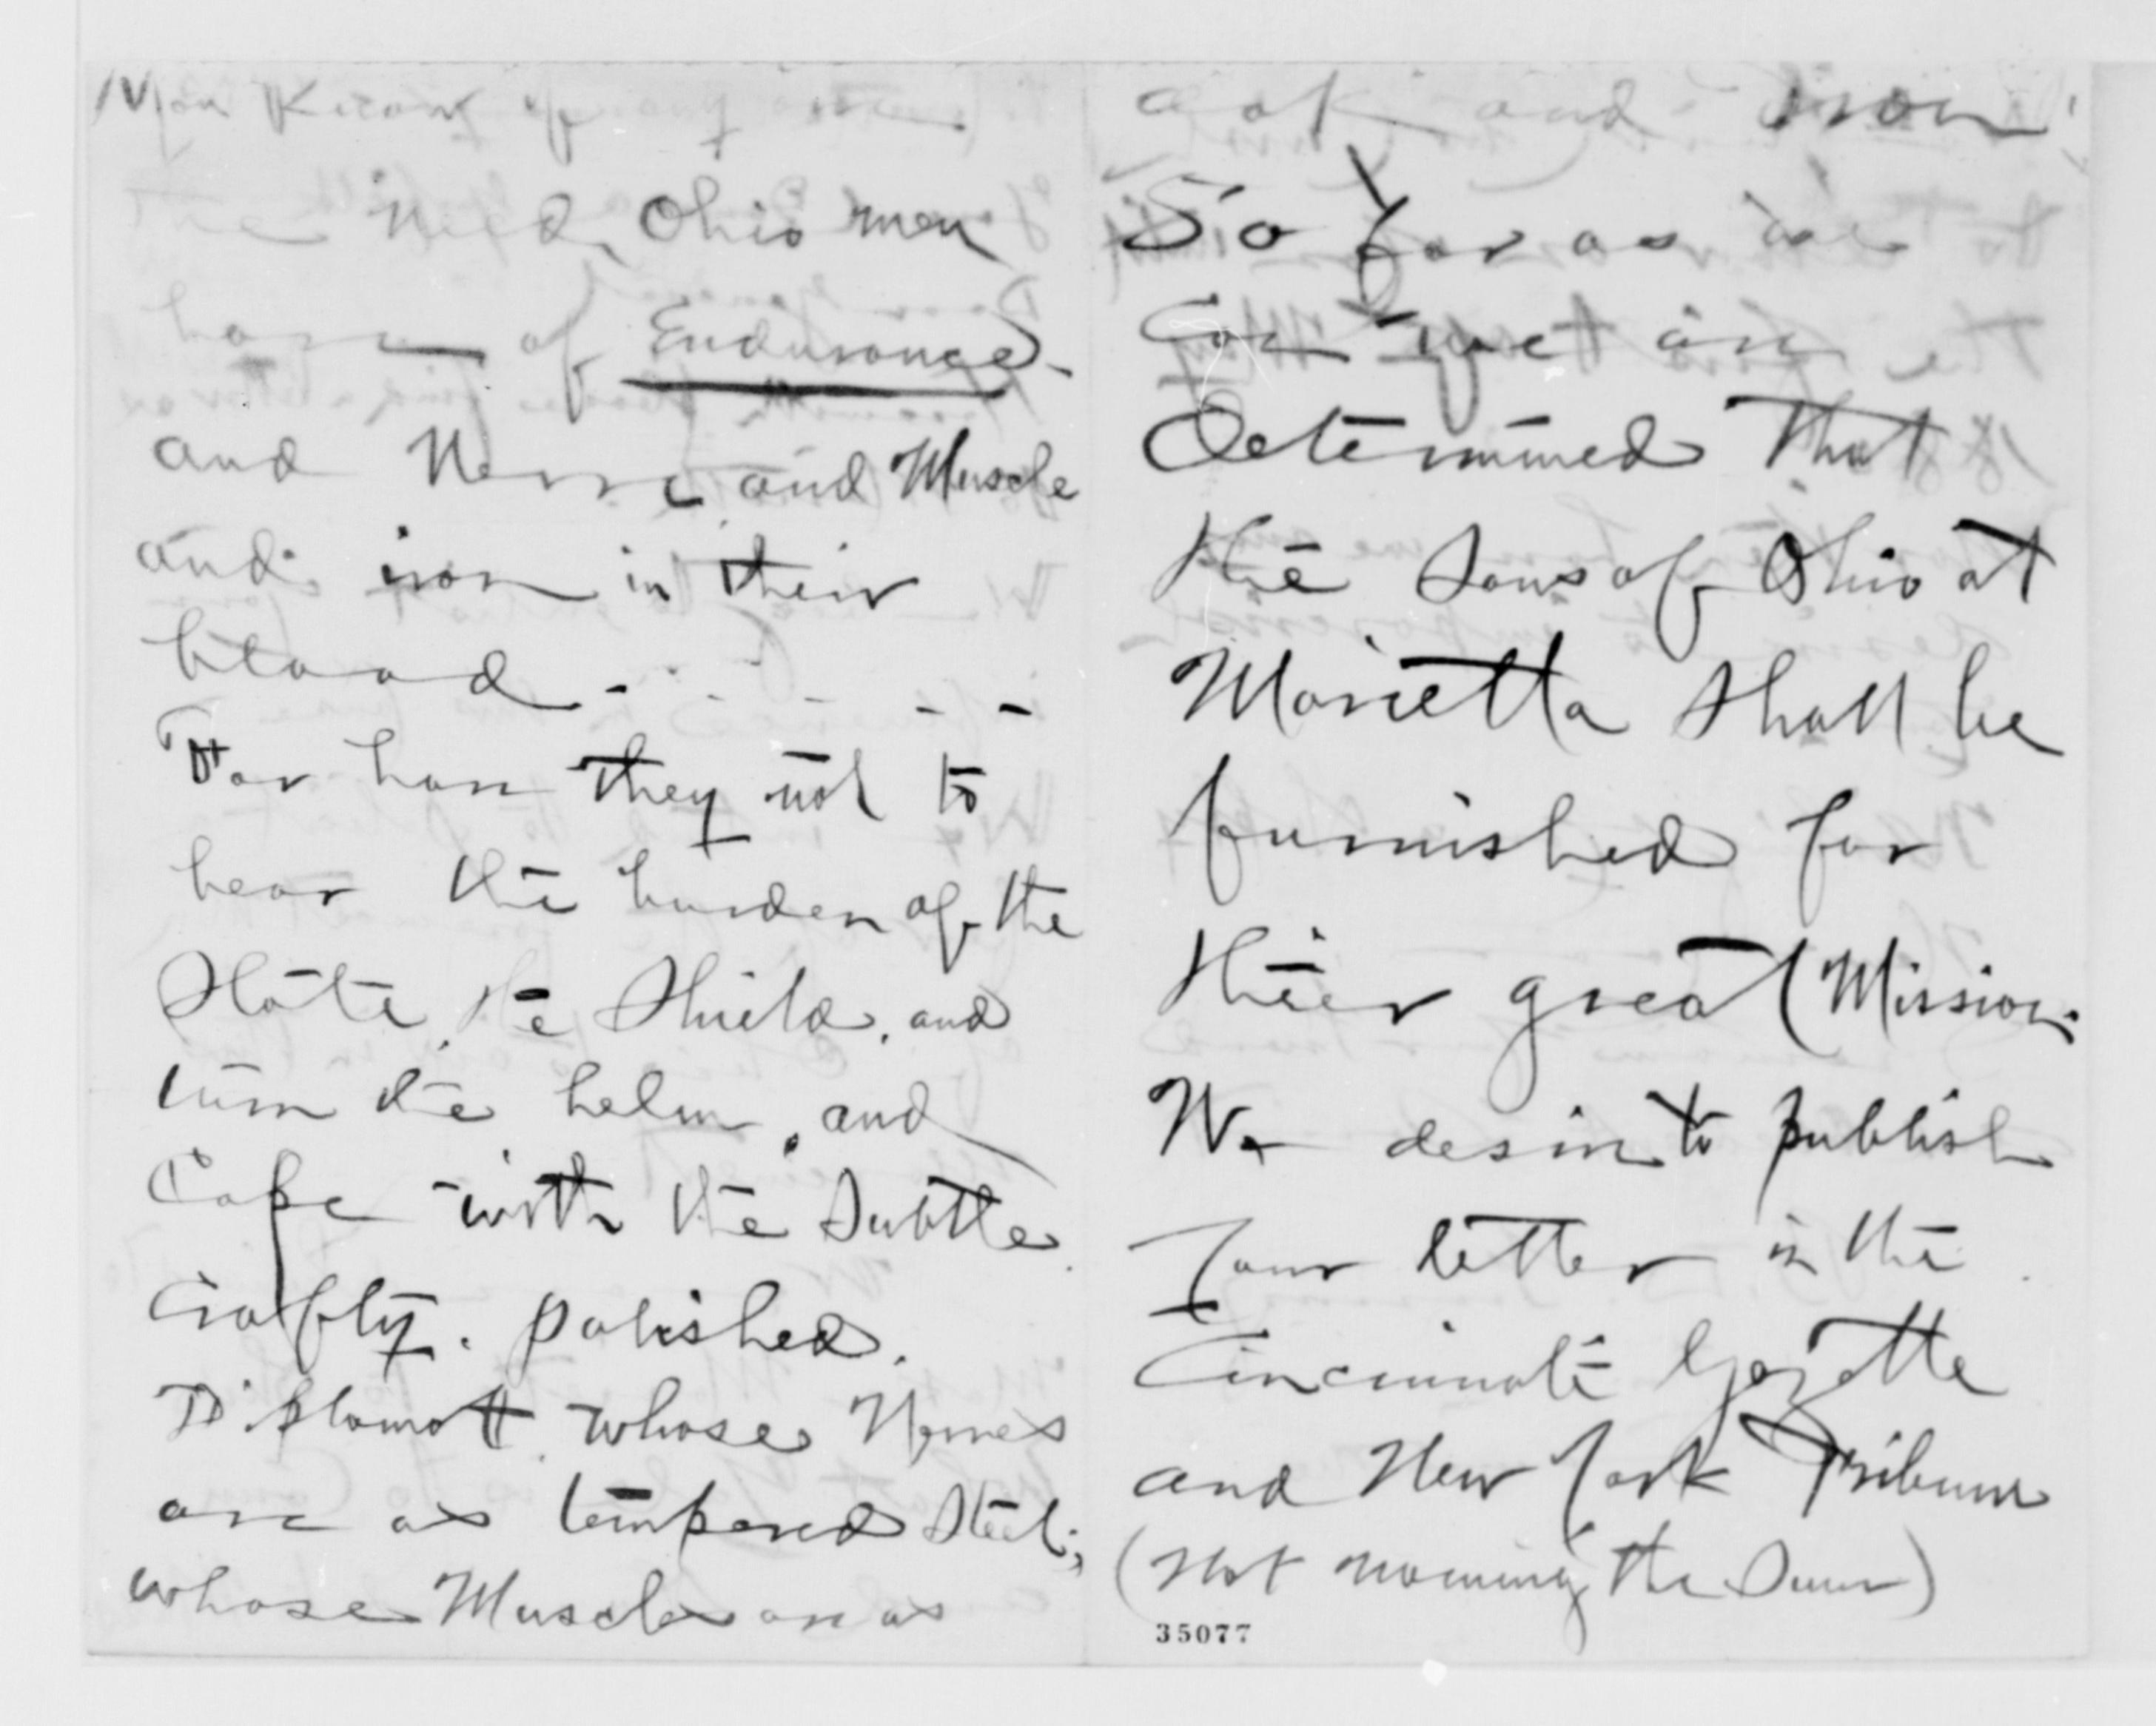 You Know of
the need, Ohio men
have of Endurance -
and Nerve and Muscle
and iron in their
blood - - - -
For have they not to
bear the burden of the
State, the Shield, and
turn the helm, and
Cope with the Subtle
Crafty. polished.
Diplomat whose Nerves
are as tempered Steel;
whose Muscles are as
oak and iron
So far as we
Can we are
determined That
the Sons of Ohio at
Marietta Shall be
furnished for
their great Mission.
We desire to publish
Your letter in the
Cincinnati Gazette
and New York Tribune
(not naming the Sum)
35077